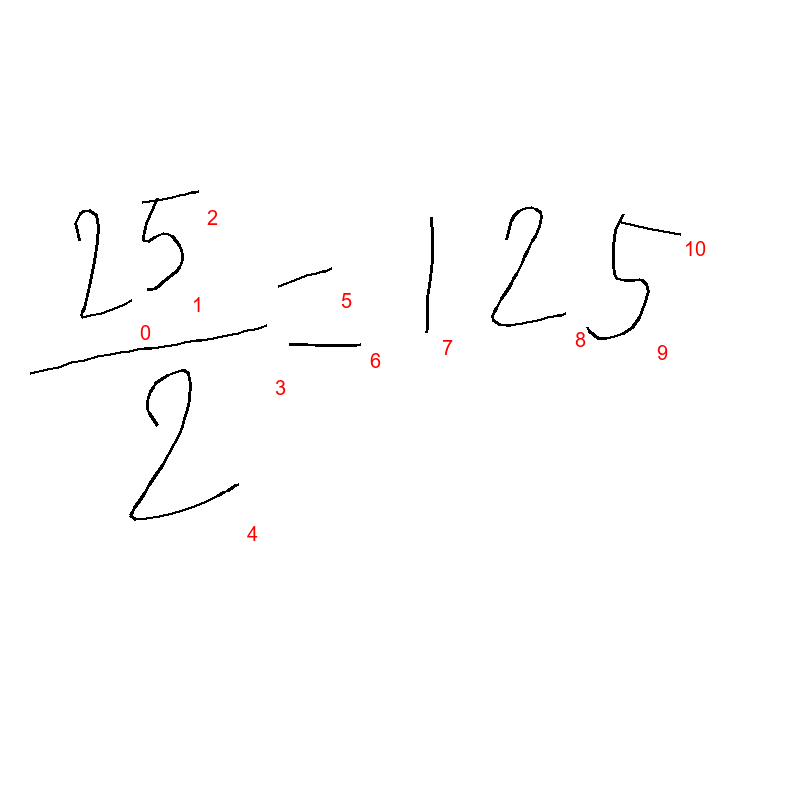 25
2
= 125
0
1
2
3
4
5
6
7
8
9
10